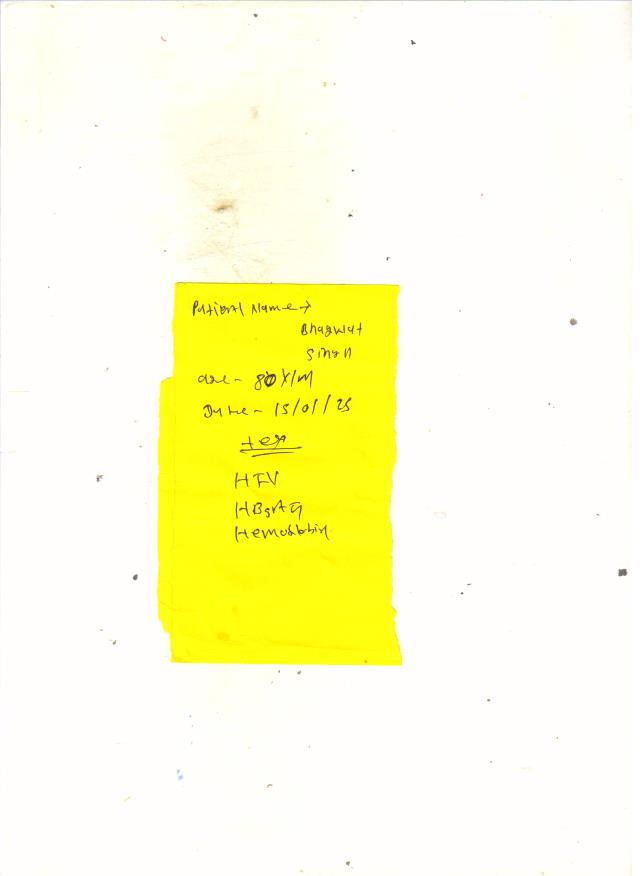 Patient Name →
Bhagwat
Singh
Age - 80 Y/M
Date - 15/01/25
test
HIV
HBsAG
Hemoglobin